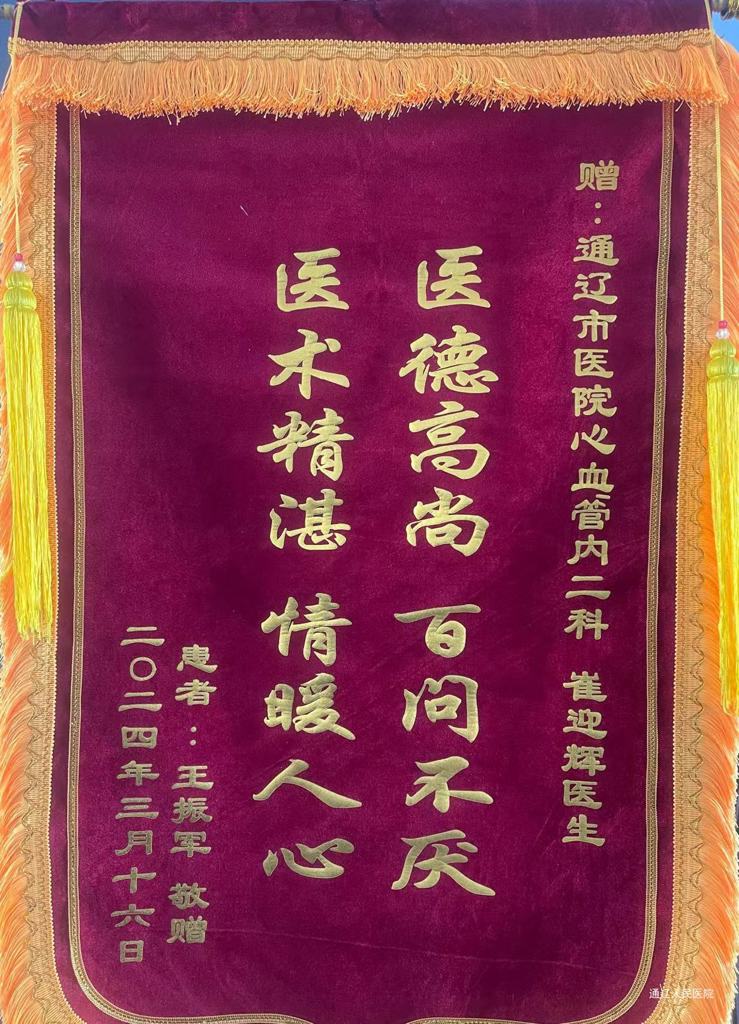 赠：通辽市医院心血管内二科 崔迎辉医生
医德高尚 百问不厌
医术精湛 情暖人心
患者：王振军 敬赠
二〇二四年三月十六日
通辽人民医院